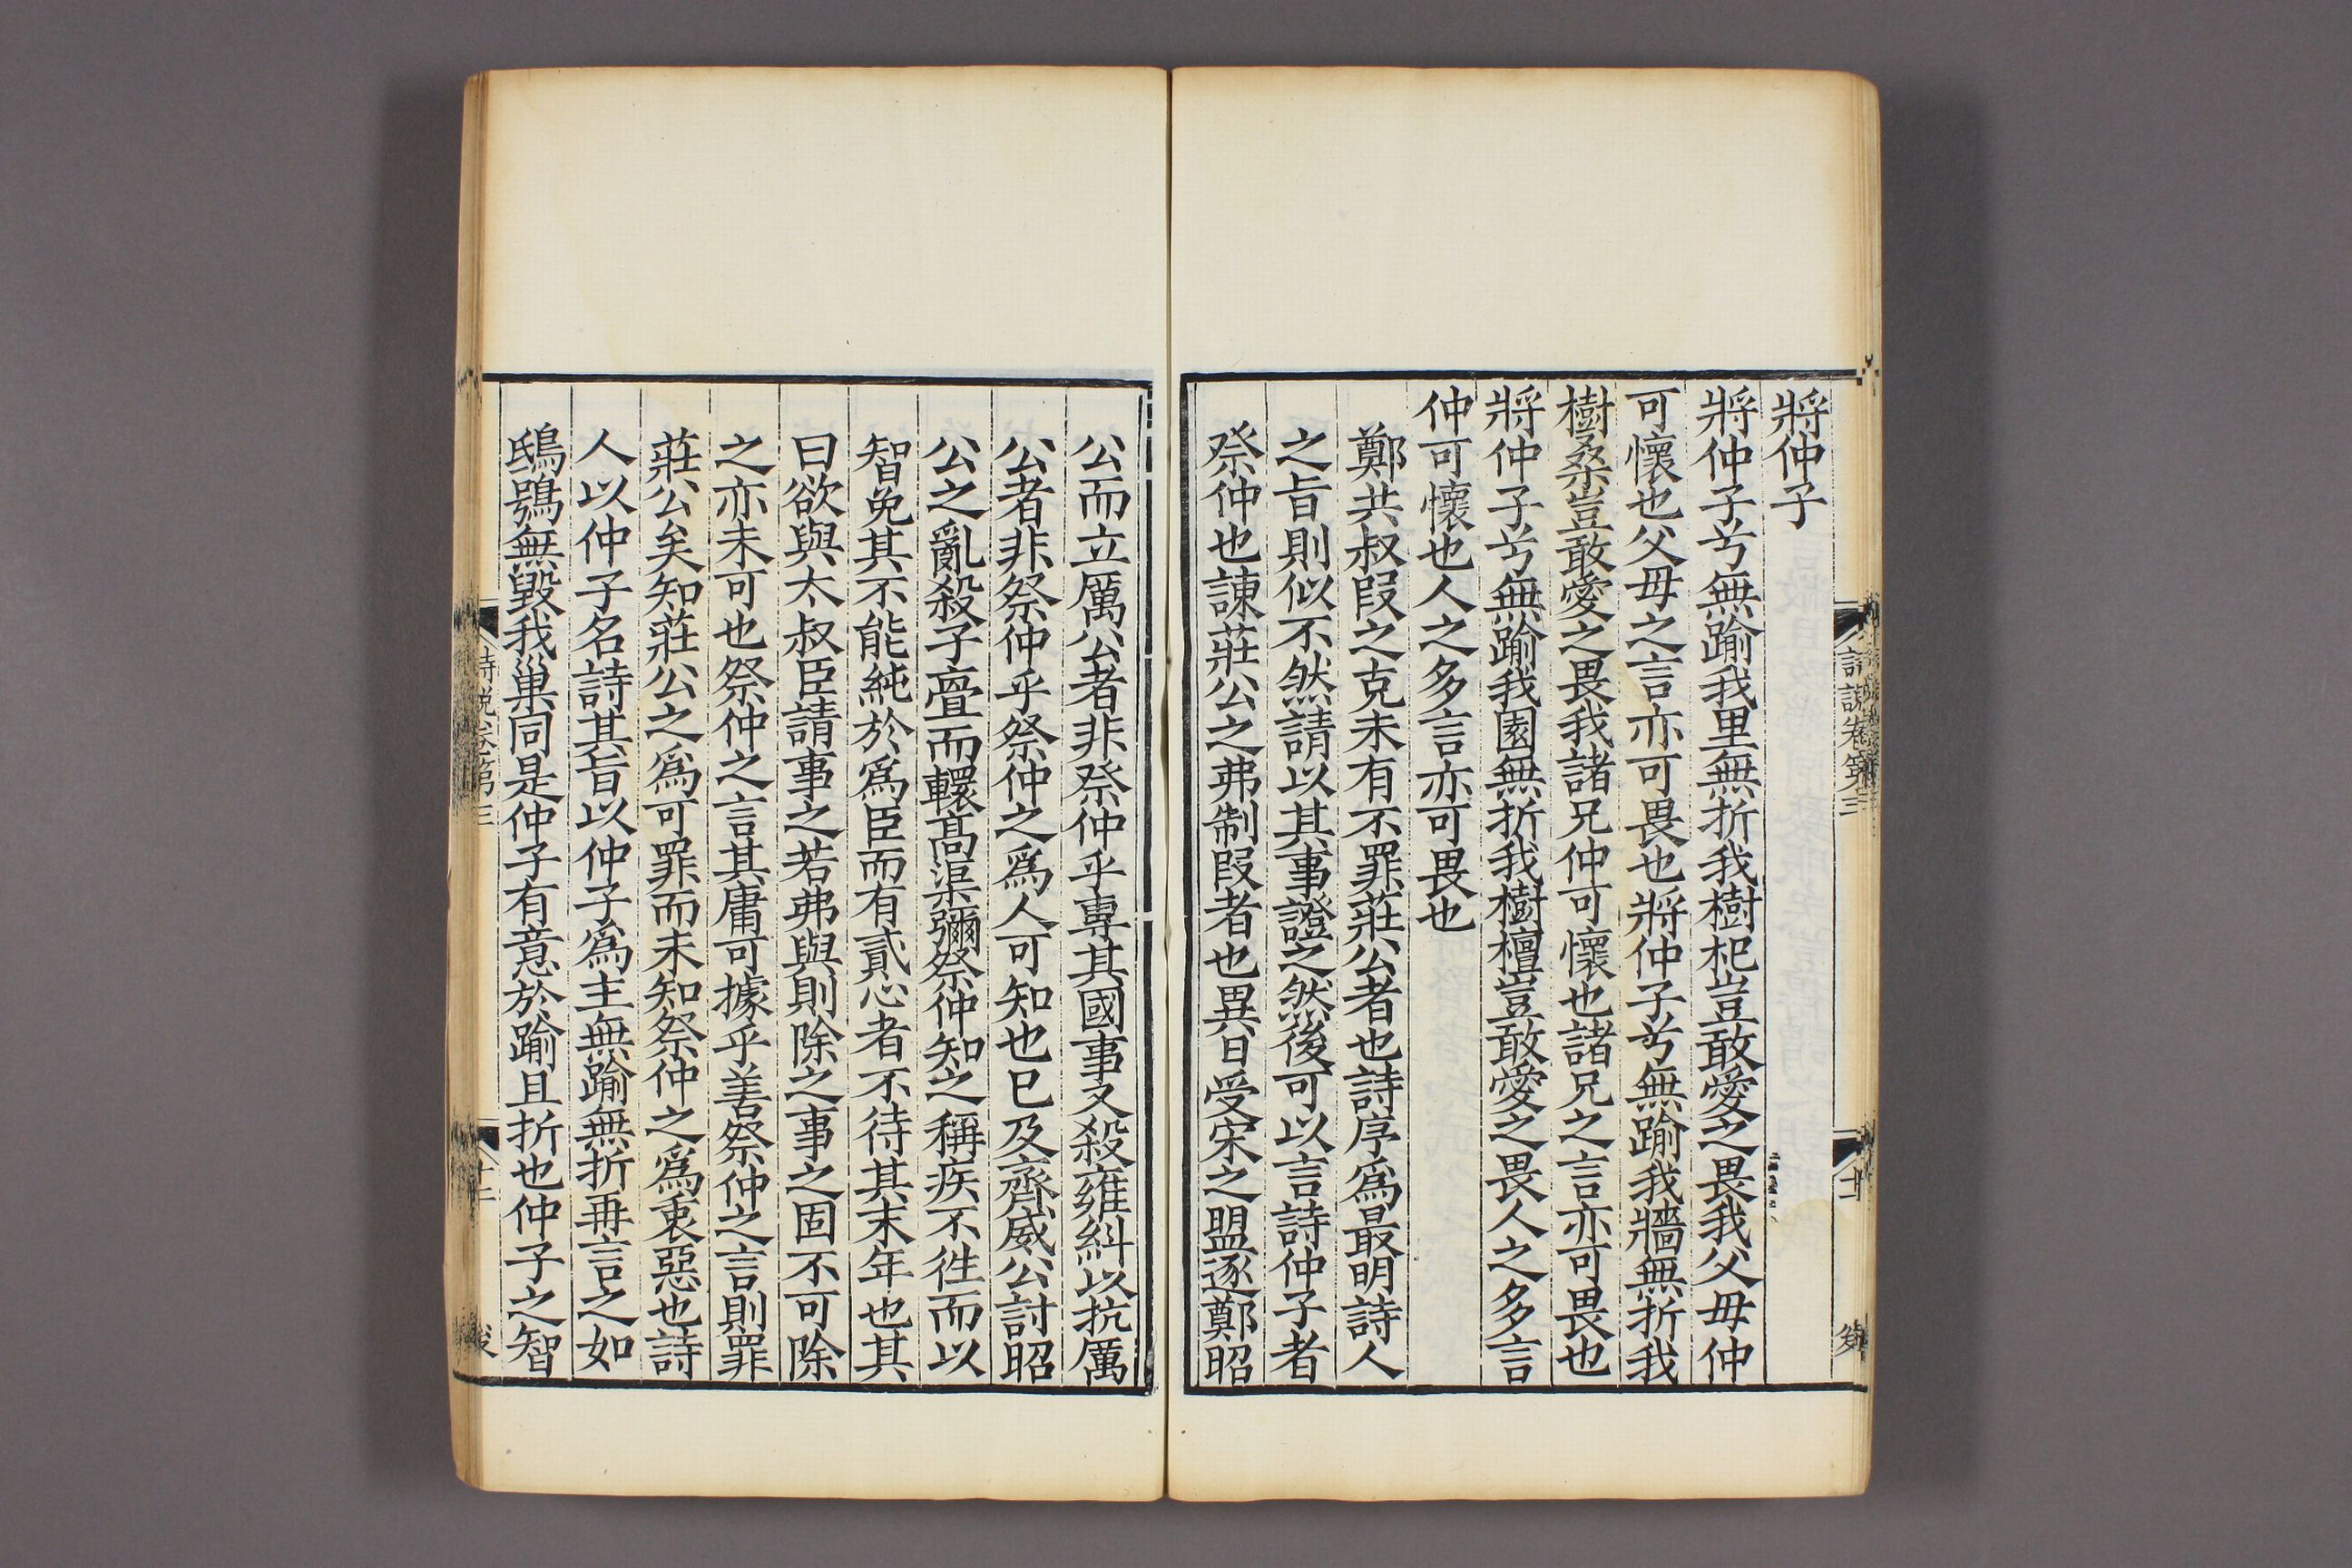 將仲子
將仲子兮無踰我里無折我樹杞豈敢愛之畏我父母仲
可懷也父母之言亦可畏也將仲子兮無踰我牆無折我
樹桑豈敢愛之畏我諸兄仲可懷也諸兄之言亦可畏也
將仲子兮無踰我園無折我樹檀豈敢愛之畏人之多言
仲可懷也人之多言亦可畏也
鄭共叔叚之克未有不罪莊公者也詩序為最明詩人
之旨則似不然請以其事證之然後可以言詩仲子者
祭仲也諫莊公之弗制叚者也異日受宋之盟逐鄭昭
公而立厲公者非祭仲乎專其國事又殺雍糾以抗厲
公者非祭仲乎祭仲之爲人可知也已及齊威公討昭
公之亂殺子亹而轘高渠彌祭仲知之稱疾不往而以
智免其不能純於爲臣而有貳心者不待其末年也其
曰欲與太叔臣請事之若弗與則除之事之固不可除
之亦未可也祭仲之言其庸可據乎善祭仲之言則罪
莊公矣知莊公之爲可罪而未知祭仲之爲衷惡也詩
人以仲子名詩其旨以仲子爲主無踰無折再言之如
鴟鴞無毀我巢同是仲子有意於踰且折也仲子之智
詩說卷第三
十二